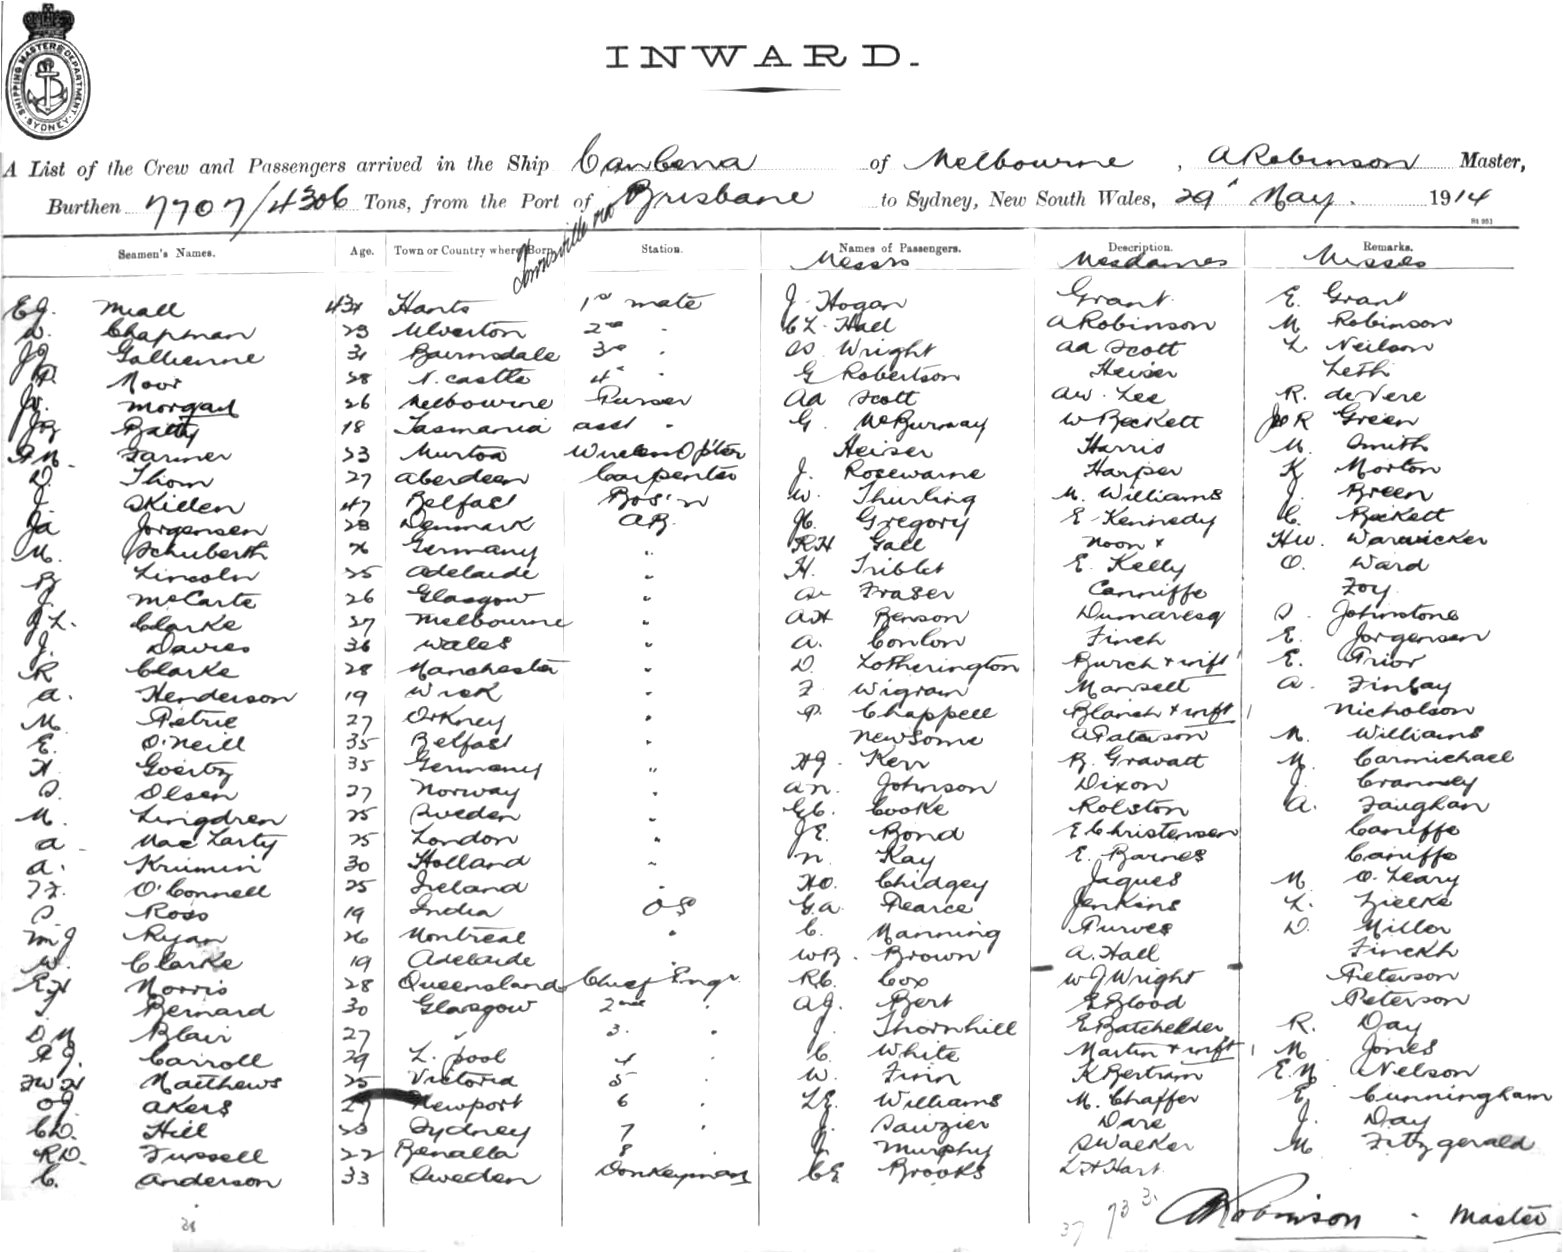 SHIPPING MASTERS DEPARTMENT
SYDNEY
INWARD.
A List of the Crew and Passengers arrived in the Ship Canberra of Melbourne, A Robinson Master,
Burthen 7707/4306 Tons, from the Port of Townsville via Brisbane to Sydney, New South Wales, 29' May. 1914
Seamen's Names. Age. Town or Country where Born Station. Names of Passengers. Description. Remarks.
Messrs Mesdames Misses
EJ. Miall 43 Hants 1st mate J. Hogan Grant E. Grant
W. Chapman 23 Ulverton 2nd " CL. Hall A Robinson M Robinson
JJ Gallienne 31 Bairnsdale 3rd " W Wright AA Scott L Neilson
P. Moor 28 N. castle 4th " G Robertson Heiser Leth
W. Morgan 26 Melbourne Purser AA Scott AW. Lee R. de Vere
Batty 18 Tasmania asst " G. McBurnay W Beckett R Green
AM. Farmer 23 Murtoa Wireless Opter Heiser Harris M. Smith
D. Thom 27 Aberdeen Carpenter J. Rosewarne Harper K Morton
J. Skillen 47 Belfast Bos'n W. Thurling M. Williams J. Breen
Ja Jorgensen 28 Denmark AB. Gregory E Kennedy C. Beckett
M. Schuberth 26 Germany " RH Gall Noon + HW. Warwicker
B Lincoln 25 Adelaide " H. Triblet E. Kelly O. Ward
J. McCarte 26 Glasgow " Fraser Canniffe Foy
JL. Clarke 27 Melbourne " AH Benson Dumaresq S. Johnstone
J. Davies 36 Wales " A. Conlon Finch E. Jorgensen
R Clarke 28 Manchester " D. Lotherington Burch + inft E. Prior
A. Henderson 19 Wick " F. Wigram Mansell A. Finlay
M. Petrie 27 Orkney " P. Chappell Blanch + inft Nicholson
E. O'Neill 35 Belfast " Newsome A Paterson M. Williams
H. Goertz 35 Germany " HJ. Kerr B. Gravatt M. Carmichael
S. Olsen 27 Norway " AN. Johnson Dixon J. Crannsey
M. Lingdren 25 Sweden " GC. Cooke Rolston A. Faughan
A. MacLarty 25 London " JE. Bond E Christensen Caniffe
A. Krumin 30 Holland " N. Kay E. Barnes Caniffe
O'Connell 25 Ireland " HO. Chidgey Jaques M O.Leary
S. Ross 19 India OS G.A. Pearce Jenkins L. Zielke
MJ Ryan 26 Montreal " C. Manning Purves D. Miller
W. Clarke 19 Adelaide " WB. Brown A. Hall Finckh
EH Norris 28 Queensland Chief Engr RC. Cox WJ Wright Peterson
T Bernard 30 Glasgow 2nd " AJ. Bert E Blood Peterson
DM Blair 27 " 3. " J. Thornhill E Batchelder R. Day
AJ. Carroll 29 L. pool 4 " C. White Martin + inft M. Jones
FWH Matthews 25 Victoria 5 " W. Finn K Bertram EM Nelson
OJ Akers 27 Newport 6 " LE. Williams M. Chaffer E. Cunningham
CD. Hill 23 Sydney 7 " J. Sauzier Dare J. Day
RD. Fussell 22 Benalla 8 " J. Murphy S Walker M Fitzgerald
C. Anderson 33 Sweden Donkeyman CE Brooks LH Hart
37 73 3. A Robinson - Master